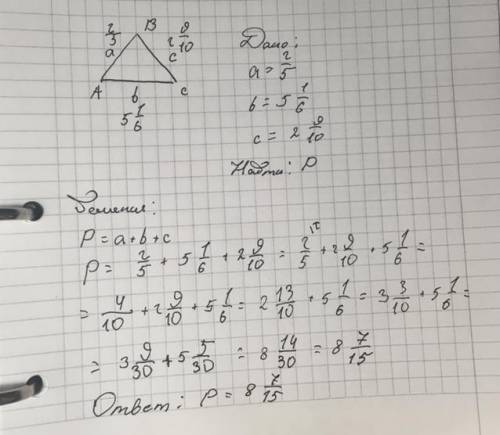 2/3 B 2 9/10
a c
A b c
5 1/6
Дано:
a = 2/5
b = 5 1/6
c = 2 9/10
Найти: P
Решения:
P = a + b + c
P = 2/5 + 5 1/6 + 2 9/10 = 2/5 + 2 9/10 + 5 1/6 =
= 4/10 + 2 9/10 + 5 1/6 = 2 13/10 + 5 1/6 = 3 3/10 + 5 1/6 =
= 3 9/30 + 5 5/30 = 8 14/30 = 8 7/15
Ответ: P = 8 7/15